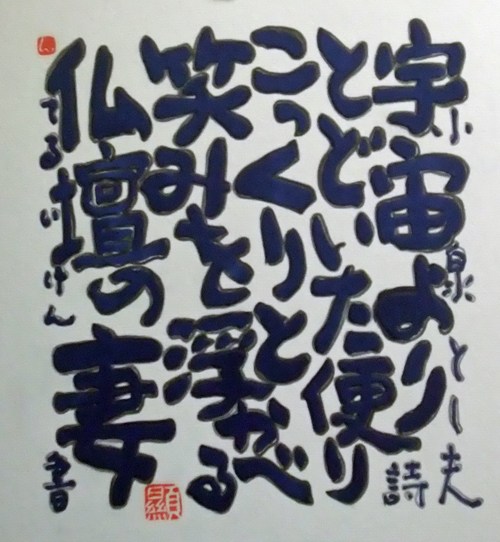 小泉とし夫 詩
宇宙より
とどいた便り
こっくりと
笑みを浮かべる
仏壇の妻
てる けん 書
顯